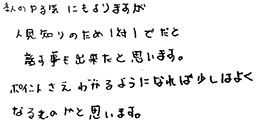 本人のやる気にもよりますが
人見知りのため1対1でだと
話す事も出来たと思います。
ポイントさえわかるようになれば少しはよく
なるものかと思います。